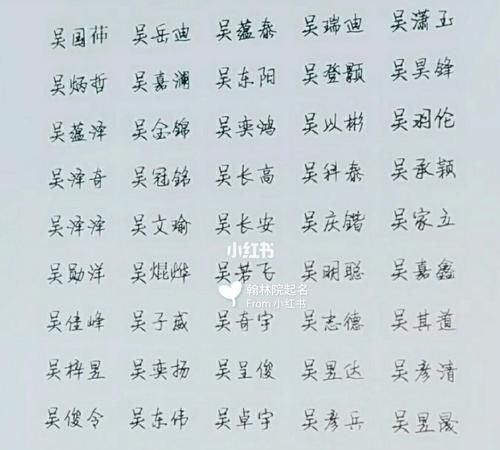 吴国祎 吴岳迪 吴蕴泰 吴瑞迪 吴潇玉
吴炳哲 吴嘉澜 吴东阳 吴登颢 吴昊锋
吴蕴泽 吴金锦 吴奕鸿 吴以彬 吴羽伦
吴泽奇 吴冠铭 吴长高 吴科泰 吴承颖
吴泽泽 吴文瑜 吴长安 吴庆锴 吴家立
小红书
吴勋洋 吴焜烨 吴若飞 吴明聪 吴嘉鑫
翰林院起名
From 小红书
吴佳峰 吴子威 吴奇宇 吴志德 吴其道
吴梓昱 吴奕扬 吴呈俊 吴昱达 吴彦清
吴俊令 吴东伟 吴卓宇 吴彦兵 吴昱晟